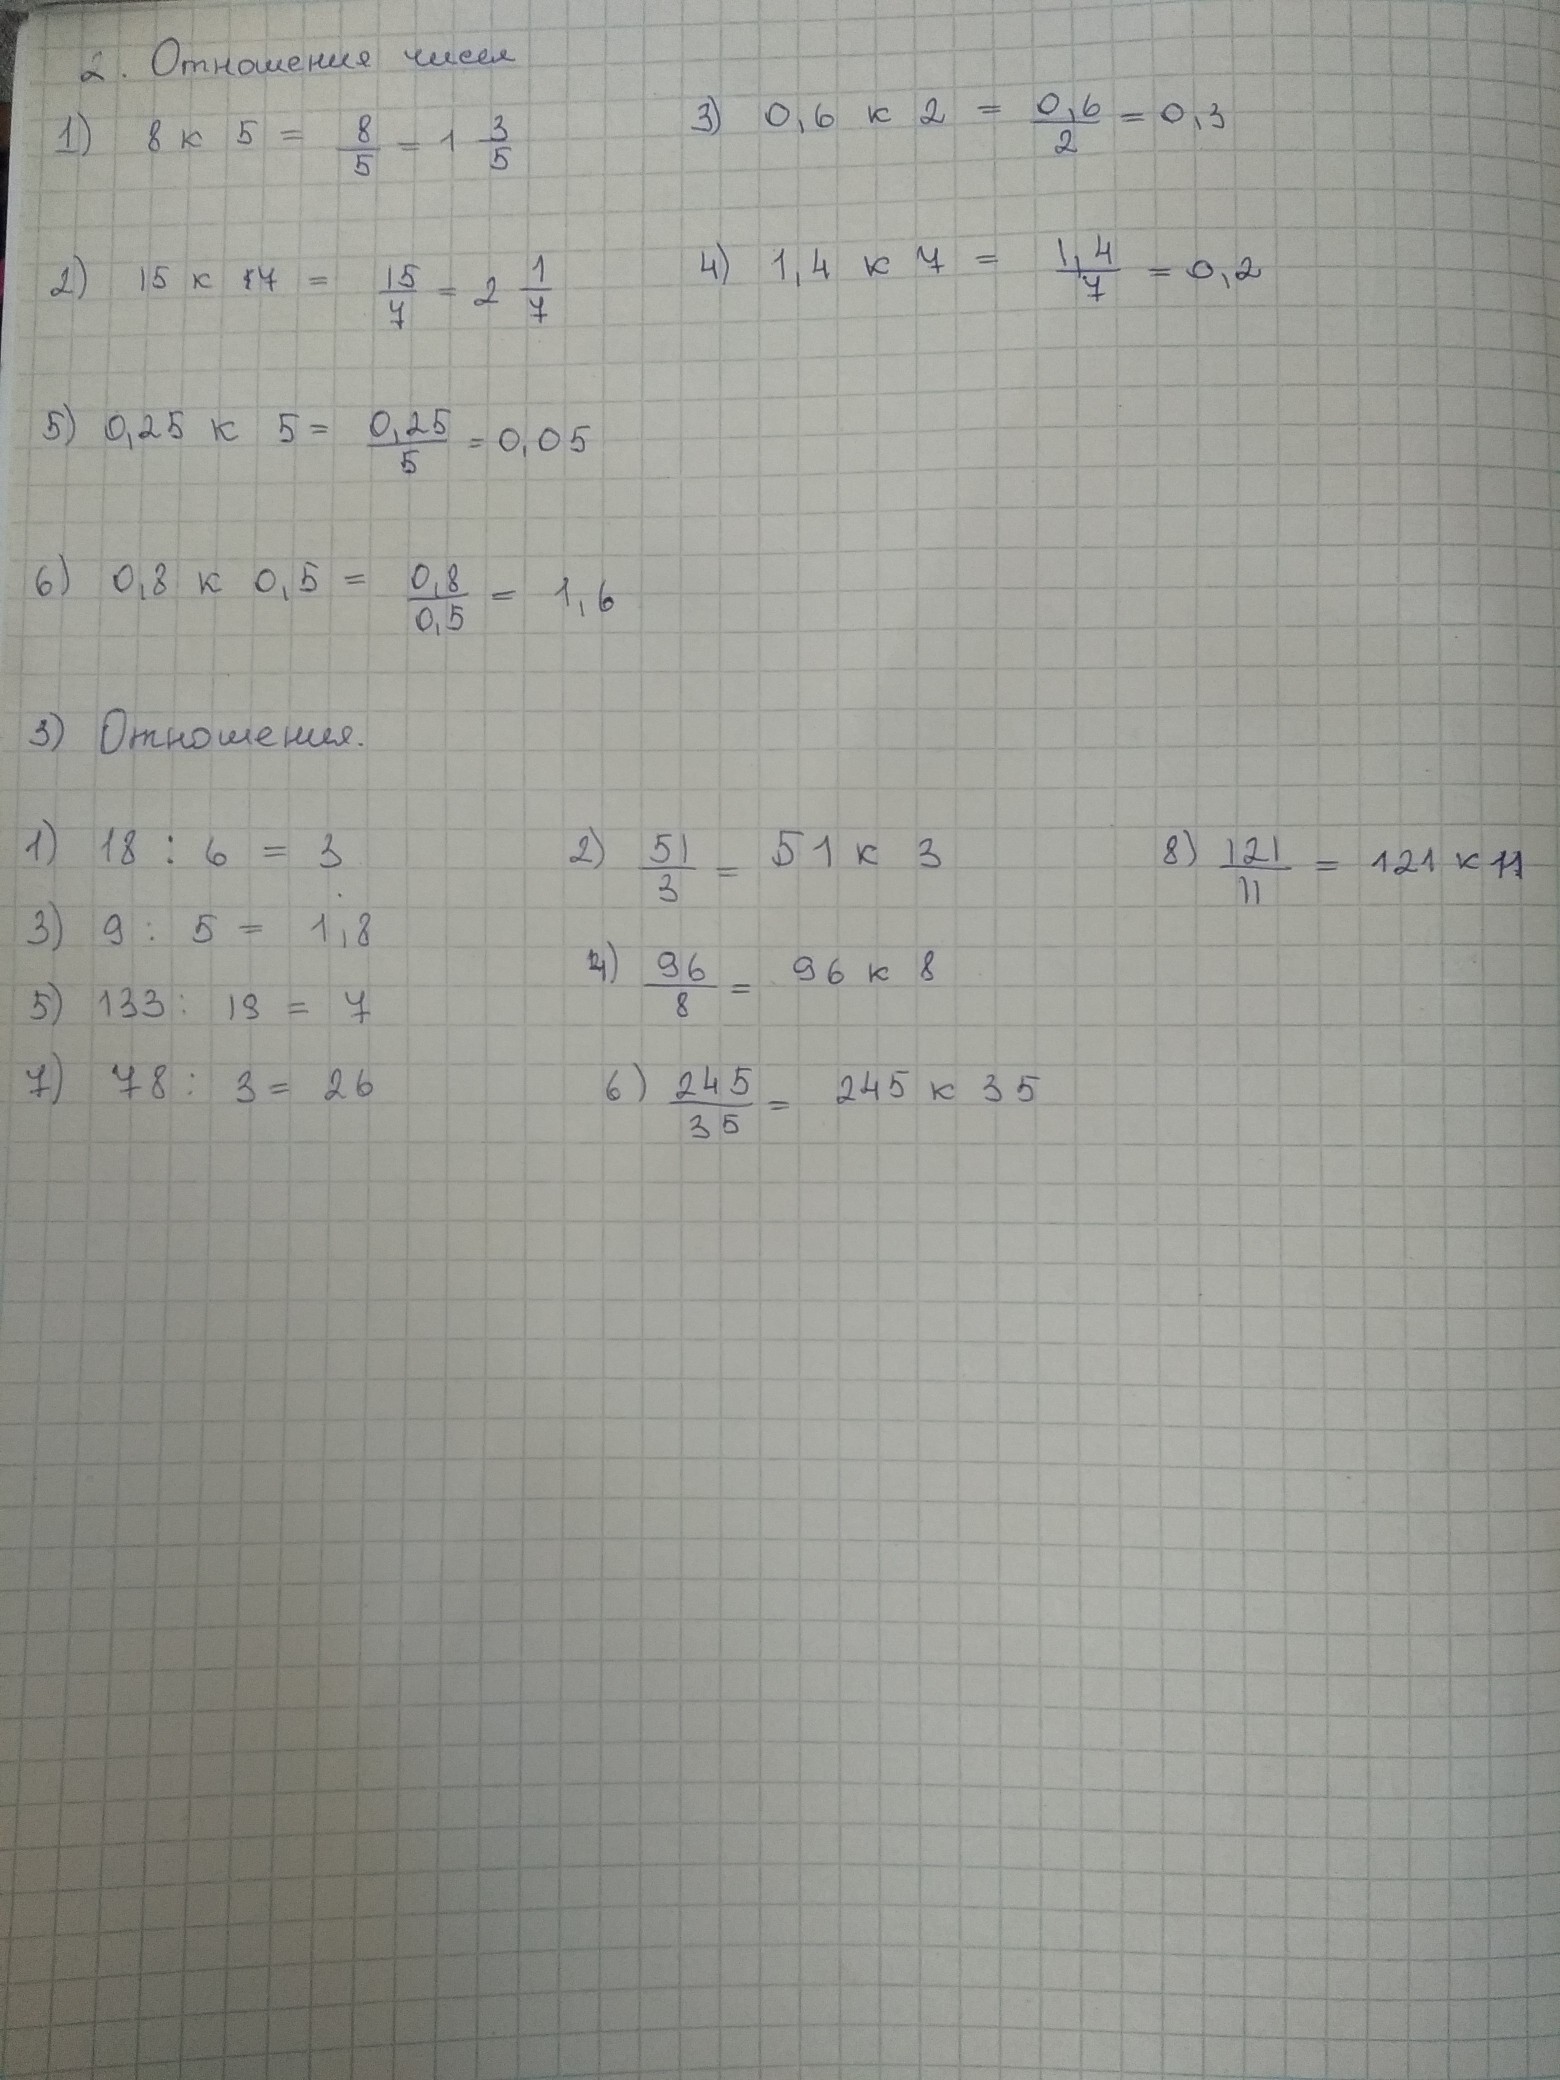 2. Отношения чисел
1) 8 к 5 = 8/5 = 1 3/5
3) 0,6 к 2 = 0,6/2 = 0,3
2) 15 к 7 = 15/7 = 2 1/7
4) 1,4 к 7 = 1,4/7 = 0,2
5) 0,25 к 5 = 0,25/5 = 0,05
6) 0,8 к 0,5 = 0,8/0,5 = 1,6
3) Отношения.
1) 18 : 6 = 3
2) 51/3 = 51 к 3
8) 121/11 = 121 к 11
3) 9 : 5 = 1,8
4) 96/8 = 96 к 8
5) 133 : 19 = 7
7) 78 : 3 = 26
6) 245/35 = 245 к 35